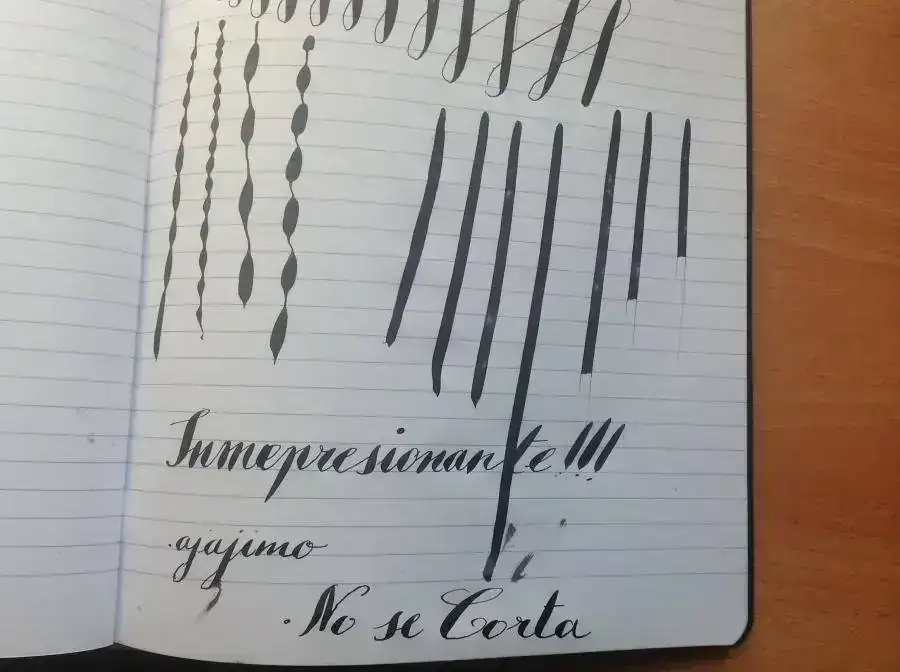 Inmepresionante!!!
.ajajimo
.No se Corta